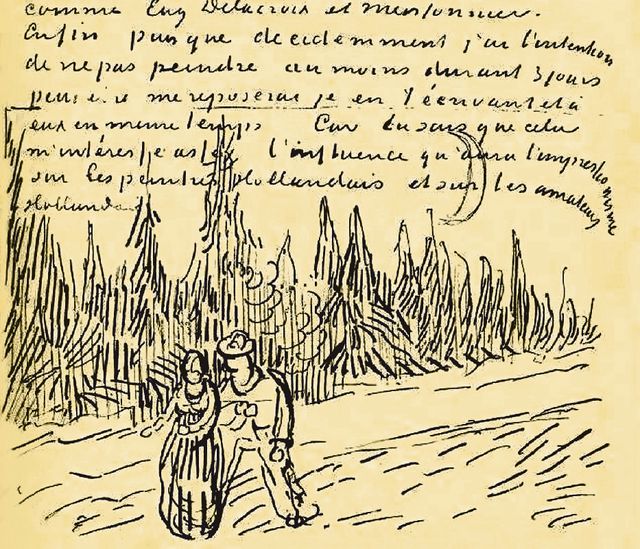 comme Eug Delacroix et Meissonnier.
Enfin puisque decidemment j'ai l'intention
de ne pas peindre au moins durant 3 jours
peut etre me reposerai je en t'écrivant et à
eux en meme temps Car tu sais que cela
m'intéresse assez l'influence qu'aura l'impressionisme
sur les peintres Hollandais et sur les amateurs
Hollandais